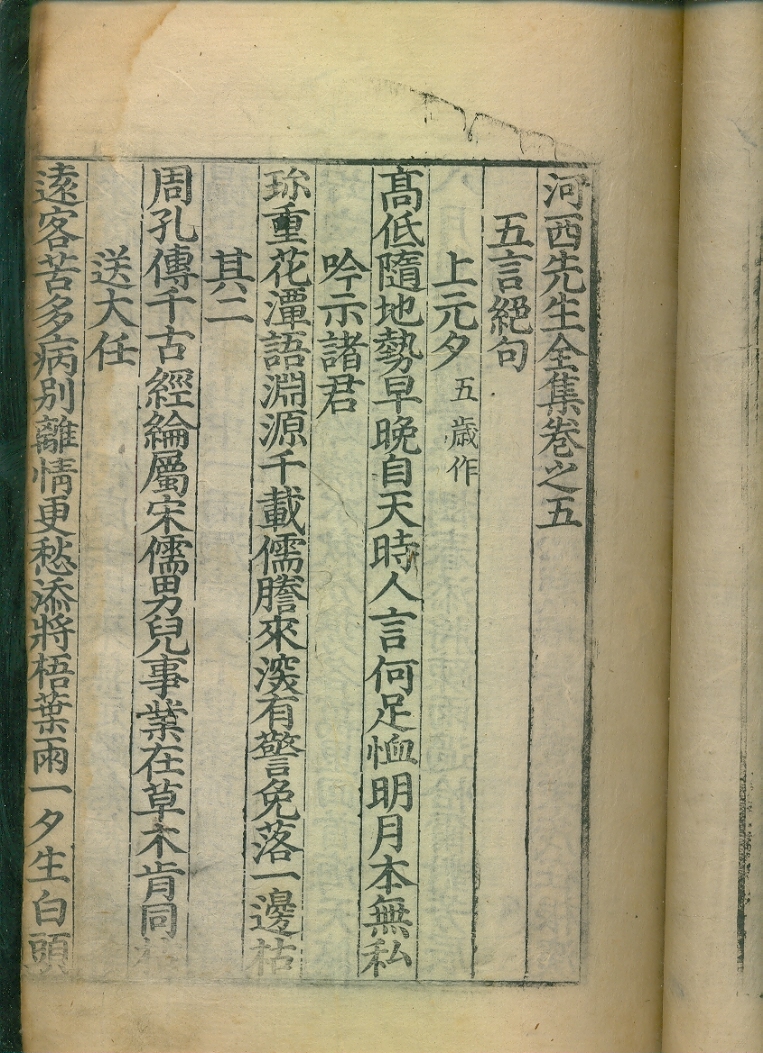 河西先生全集卷之五
五言絕句
上元夕 五歲作
髙低隨地勢早晚自天時人言何足恤明月本無私
吟示諸君
珎重花潭語淵源千載儒謄來深有警免落一邊枯
其二
周孔傳千古經綸屬宋儒男兒事業在草木肯同
送大任
遠客苦多病別離情更愁添將梧葉雨一夕生白頭